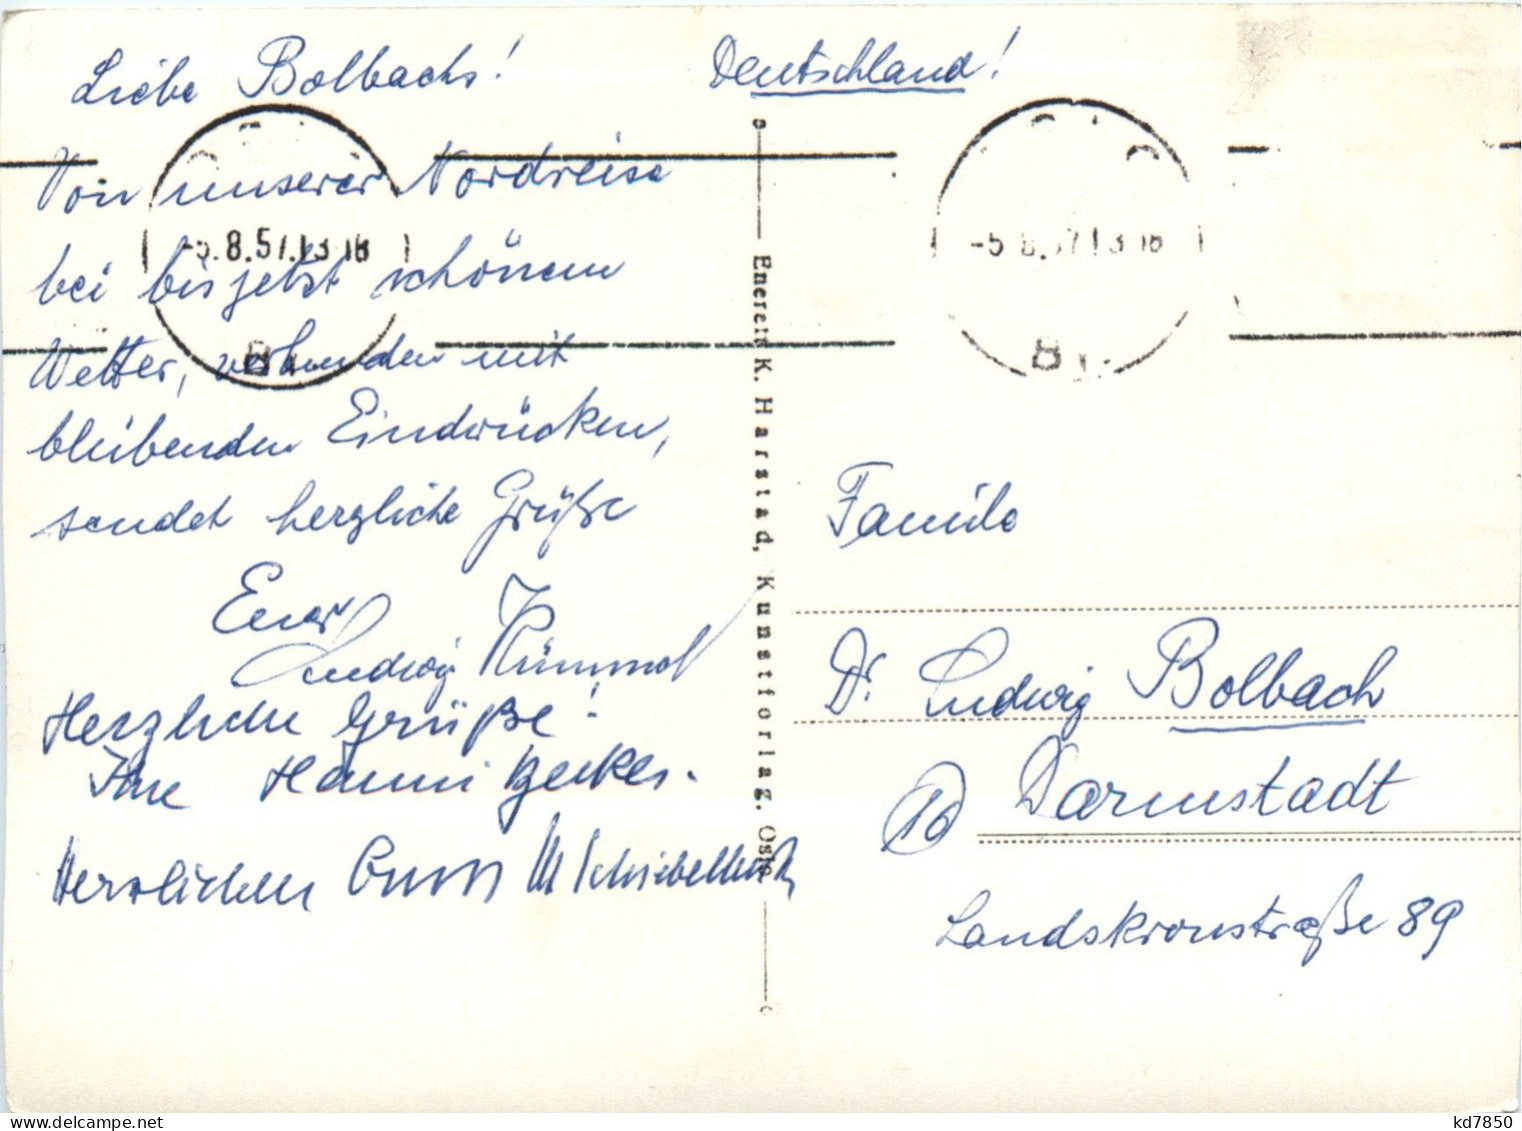 Liebe Bolbachs!
Von unserer Nordreise
bei bis jetzt schönem
Wetter, verbunden mit
bleibenden Eindrücken,
sendet herzliche Grüße
Euer
Ludwig Kümmel
Herzliche Grüße!
Ihre Hanni Becker.
Herzlichen Gruss
-5.8.57.13 18
Eneret: K. Harstad, Kunstforlag, Oslo
Deutschland!
-5 8.57 13 18
Familie
Dr. Ludwig Bolbach
16 Darmstadt
Landskronstraße 89
kd7850